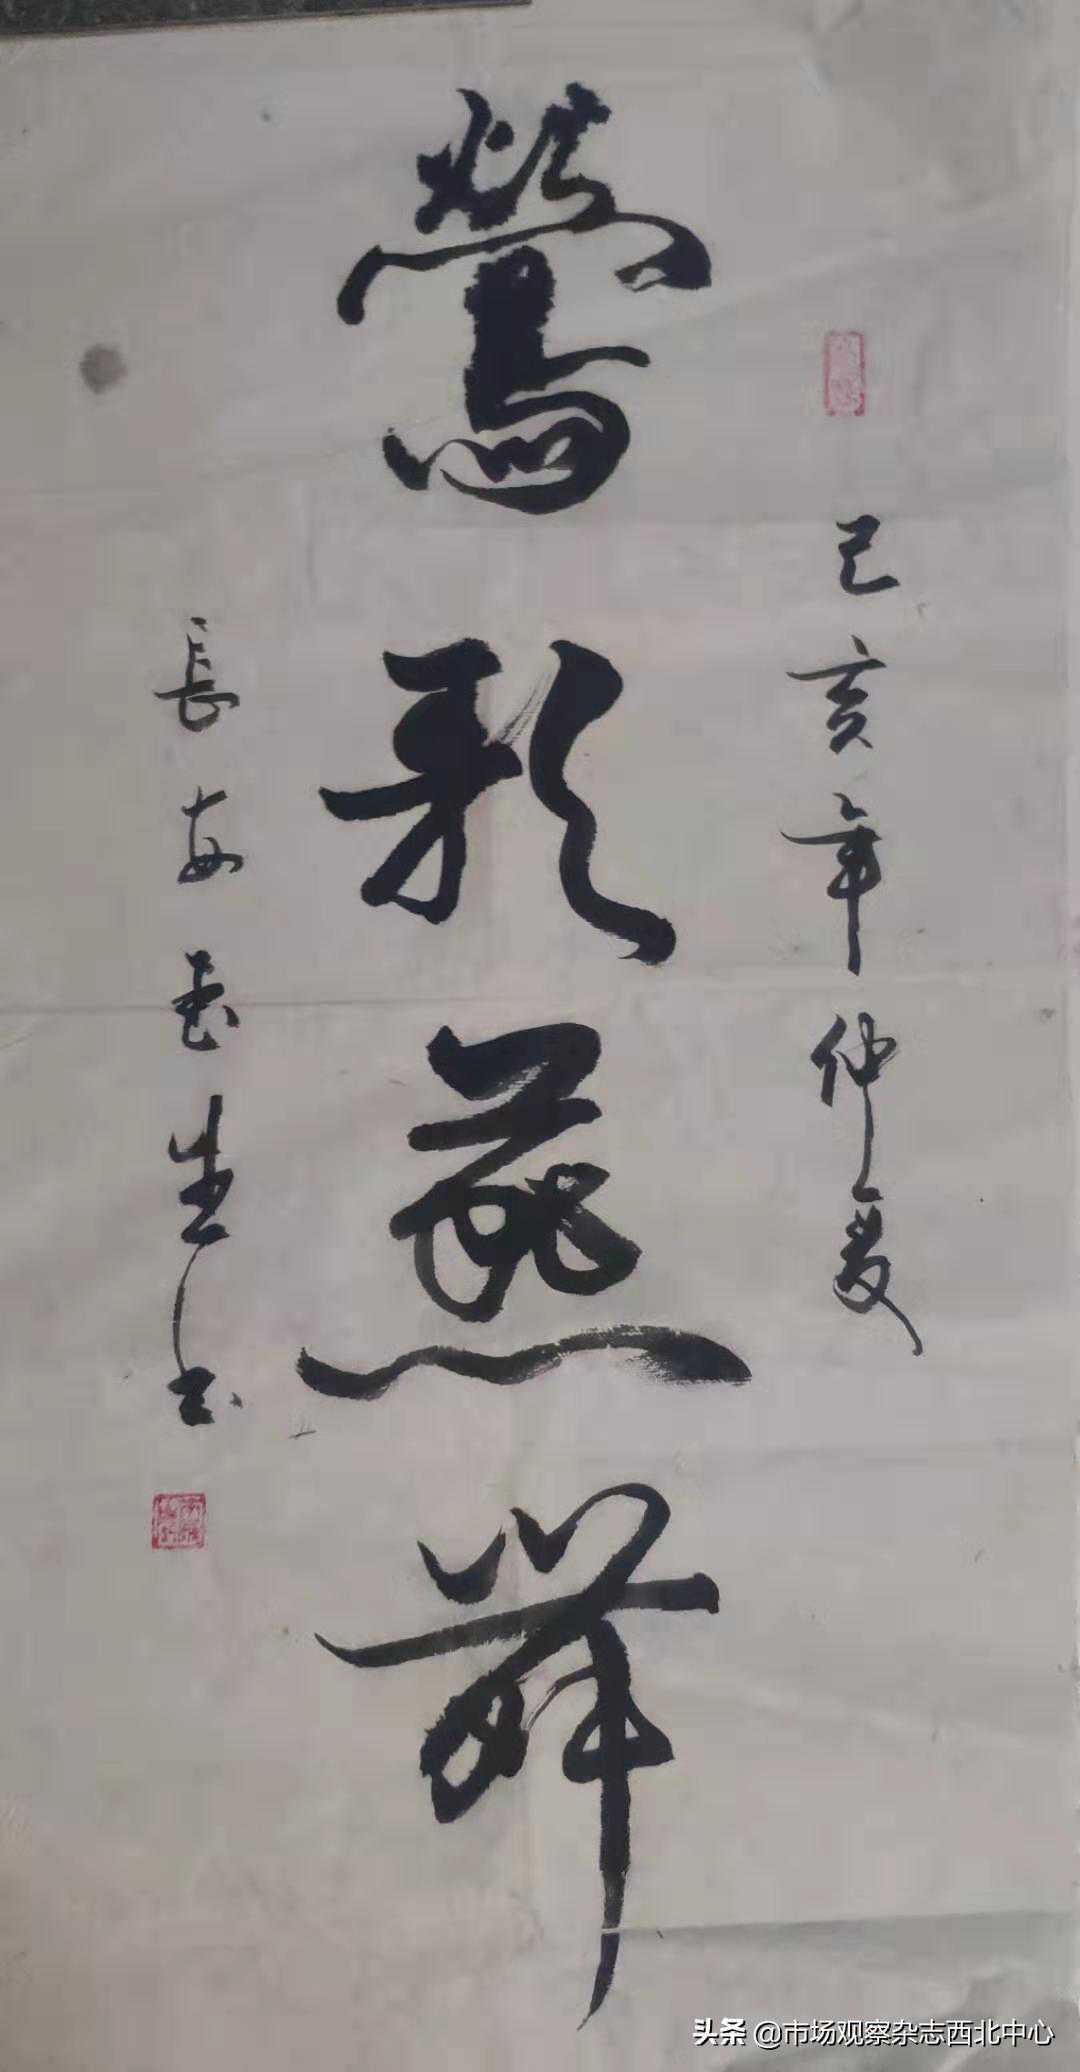 己亥年仲夏
鶯歌燕舞
長安生书
头条 @市场观察杂志西北中心